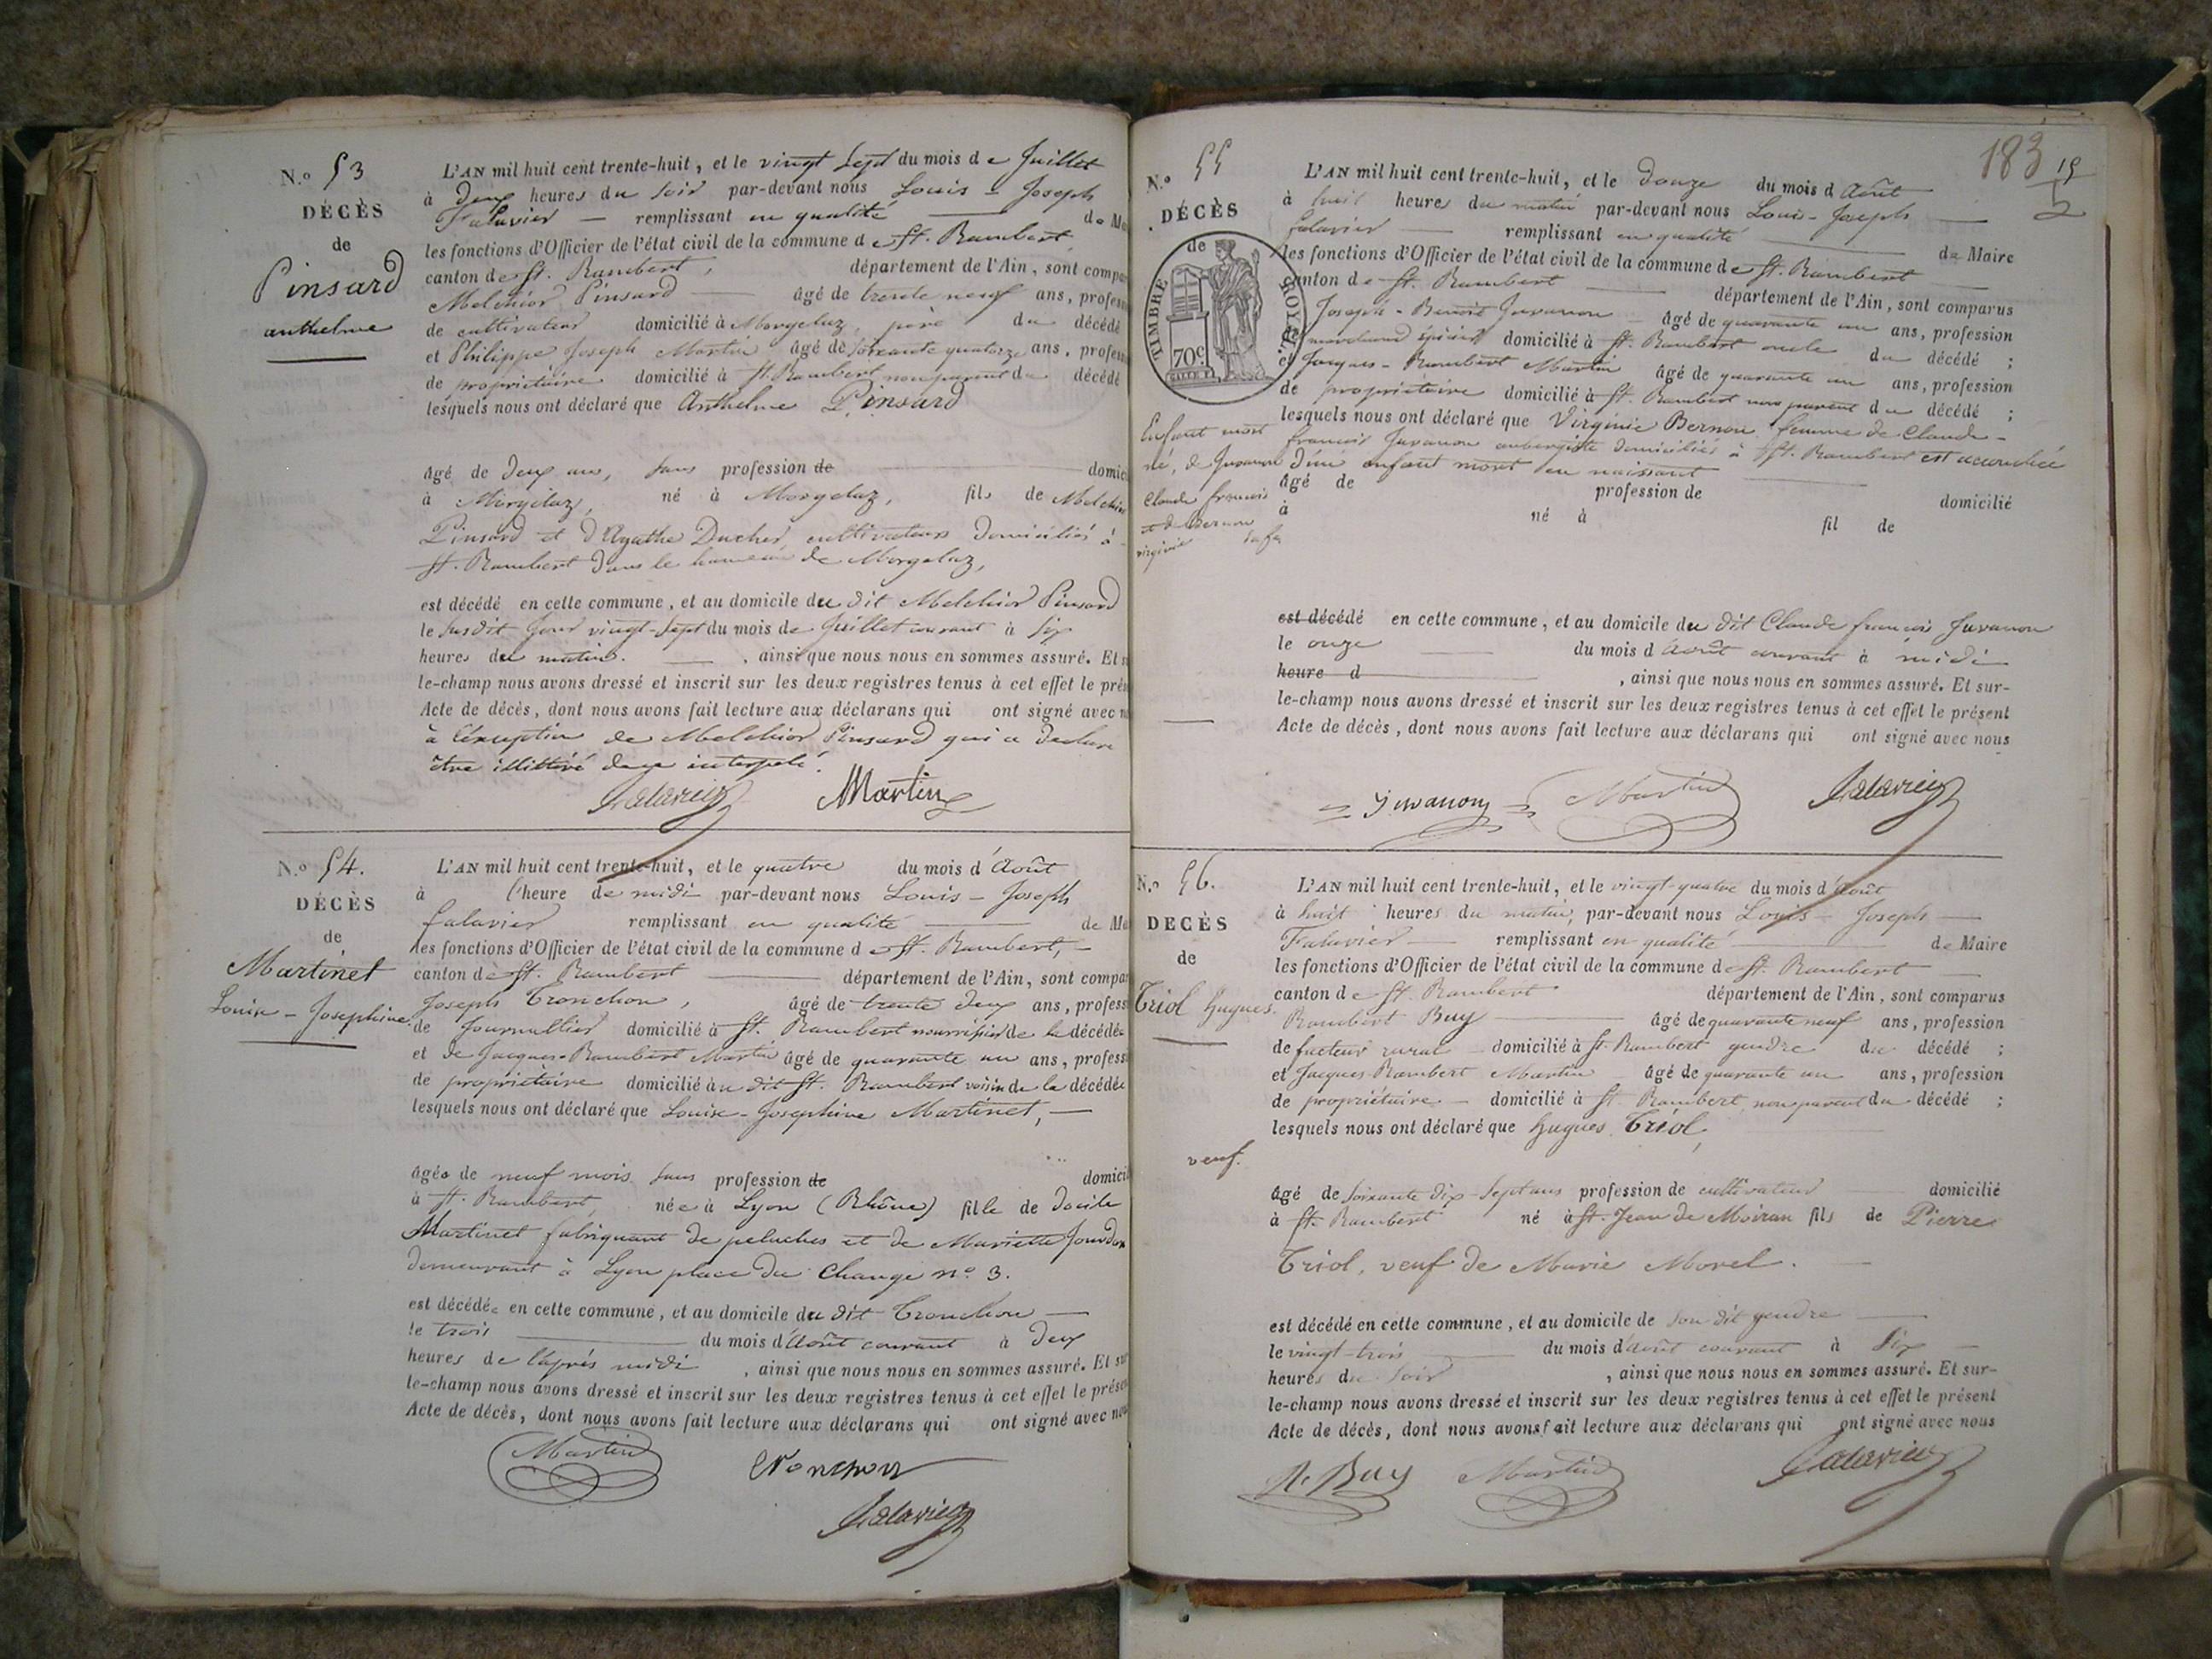 N.º 53
DÉCÈS
de
Pinsard
anthelme
L'AN mil huit cent trente-huit, et le vingt sept du mois de Juillet
à deux heures du soir par-devant nous Louis - Joseph
Falavier — remplissant en qualité — de Ma
les fonctions d'Officier de l'état civil de la commune de St. Rambert,
canton de St. Rambert, département de l'Ain, sont compa
Melchior Pinsard — âgé de trente neuf ans, profess
de cultivateur domicilié à Morgelaz, père du décédé
et Philippe Joseph Martin âgé de soixante quatorze ans, profess
de propriétaire domicilié à St. Rambert non parent du décédé
lesquels nous ont déclaré que Anthelme Pinsard
âgé de deux ans, sans profession de domici
à Morgelaz, né à Morgelaz, fils de Melchior
Pinsard et d'Agathe Ducher, cultivateurs domiciliés à
St. Rambert dans le hameau de Morgelaz,
est décédé en cette commune, et au domicile du dit Melchior Pinsard
le susdit jour vingt-sept du mois de Juillet courant à six
heures du matin. — , ainsi que nous nous en sommes assuré. Et s
le-champ nous avons dressé et inscrit sur les deux registres tenus à cet effet le pré
Acte de décès, dont nous avons fait lecture aux déclarans qui ont signé avec n
à l'exception de Melchior Pinsard qui a declaré
être illittéré de ce interpelé.
Falavier Martin
N.º 54.
DÉCÈS
de
Martinet
Louise - Josephine
L'AN mil huit cent trente-huit, et le quatre du mois d'Août
à l'heure de midi par-devant nous Louis - Joseph
falavier remplissant en qualité — de Ma
les fonctions d'Officier de l'état civil de la commune de St. Rambert, —
canton de St. Rambert — département de l'Ain, sont compa
Joseph Tronchon, âgé de trente deux ans, profess
de Journallier domicilié à St. Rambert nourricier de la décédée
et de Jacques-Rambert Martin âgé de quarante un ans, profess
de propriétaire domicilié au dit St. Rambert voisin de la décédée
lesquels nous ont déclaré que Louise - Josephine Martinet, —
âgée de neuf mois sans profession de domici
à St. Rambert, née à Lyon (Rhône) fille de docile
Martinet fabriquant de peluches et de Mariette Jourdan
demeurant à Lyon place du Change nº 3.
est décédée en cette commune, et au domicile du dit Tronchon —
le trois — du mois d'Août courant à deux
heures de l'après midi , ainsi que nous nous en sommes assuré. Et su
le-champ nous avons dressé et inscrit sur les deux registres tenus à cet effet le prése
Acte de décès, dont nous avons fait lecture aux déclarans qui ont signé avec no
Martin tronchon
Falavier
183
19
N.º 55
DÉCÈS
de
TIMBRE ROYAL.
70c
Enfant mort
né, de Juvanon
Claude francois
et de Bernon
virginie
L'AN mil huit cent trente-huit, et le douze du mois d'Août
à huit heures du matin par-devant nous Louis - Joseph —
falavier — remplissant en qualité — de Maire
les fonctions d'Officier de l'état civil de la commune de St. Rambert
canton de St. Rambert — département de l'Ain, sont comparus
Joseph - Benoit Juvanon — âgé de quarante un ans, profession
marchand épicier domicilié à St. Rambert oncle du décédé ;
et Jacques - Rambert Martin âgé de quarante un ans, profession
de propriétaire domicilié à St. Rambert non parent du décédé ;
lesquels nous ont déclaré que Virginie Bernon femme de Claude -
francois Juvanon aubergiste domiciliés à St. Rambert est accouchée
d'un enfant mort en naissant —
âgé de profession de domicilié
à né à fil de
est décédé en cette commune, et au domicile du dit Claude francois Juvanon
le onze — du mois d'Août courant à midi
heure d , ainsi que nous nous en sommes assuré. Et sur-
le-champ nous avons dressé et inscrit sur les deux registres tenus à cet effet le présent
Acte de décès, dont nous avons fait lecture aux déclarans qui ont signé avec nous
Juvanon Martin Falavier
N.º 56.
DECÈS
de
Triol hugues.
veuf.
L'AN mil huit cent trente-huit, et le vingt-quatre du mois d'Août
à huit heures du matin, par-devant nous Louis - Joseph —
Falavier — remplissant en qualité — de Maire
les fonctions d'Officier de l'état civil de la commune de St. Rambert —
canton de St. Rambert département de l'Ain, sont comparus
Rambert Buy — âgé de quarante neuf ans, profession
de facteur rural domicilié à St. Rambert gendre du décédé ;
et Jacques-Rambert Martin âgé de quarante un ans, profession
de propriétaire — domicilié à St. Rambert non parent du décédé ;
lesquels nous ont déclaré que hugues Triol,
âgé de soixante dix-sept ans profession de cultivateur — domicilié
à St. Rambert né à St. Jean de Moiran fils de Pierre
Triol, veuf de Marie Morel. —
est décédé en cette commune, et au domicile de son dit gendre —
le vingt-trois — du mois d'Août courant à six —
heures du soir , ainsi que nous nous en sommes assuré. Et sur-
le-champ nous avons dressé et inscrit sur les deux registres tenus à cet effet le présent
Acte de décès, dont nous avons fait lecture aux déclarans qui ont signé avec nous
R. Buy Martin Falavier